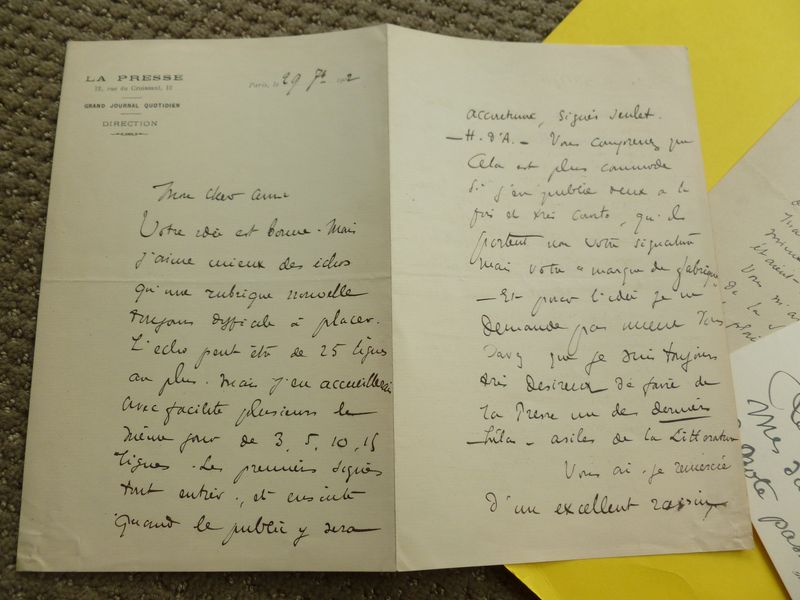 LA PRESSE
12, rue du Croissant, 12
GRAND JOURNAL QUOTIDIEN
DIRECTION
Paris, le 29 7bre 1902
Mon cher ami
Votre idée est bonne. Mais
j'aime mieux des échos
qu'une rubrique nouvelle
toujours difficile à placer.
L'écho peut être de 25 lignes
au plus. Mais j'en accueillerai
avec facilité plusieurs le
même jour de 3, 5, 10, 15
lignes. Les premiers signés
tout entier, et ensuite
quand le public y sera
accoutumé, signés seulet.
— H. d'A. — Vous comprenez que
cela est plus commode
si j'en publie deux à la
fois et très courts, qu'ils
portent non votre signature
mais votre "marque de fabrique"
— Et pour l'idée je ne
demande pas mieux
que je suis toujours
très désireux de faire de
La Presse un des derniers
— hélas — asiles de la Littérature
Vous ai-je remercié
d'un excellent